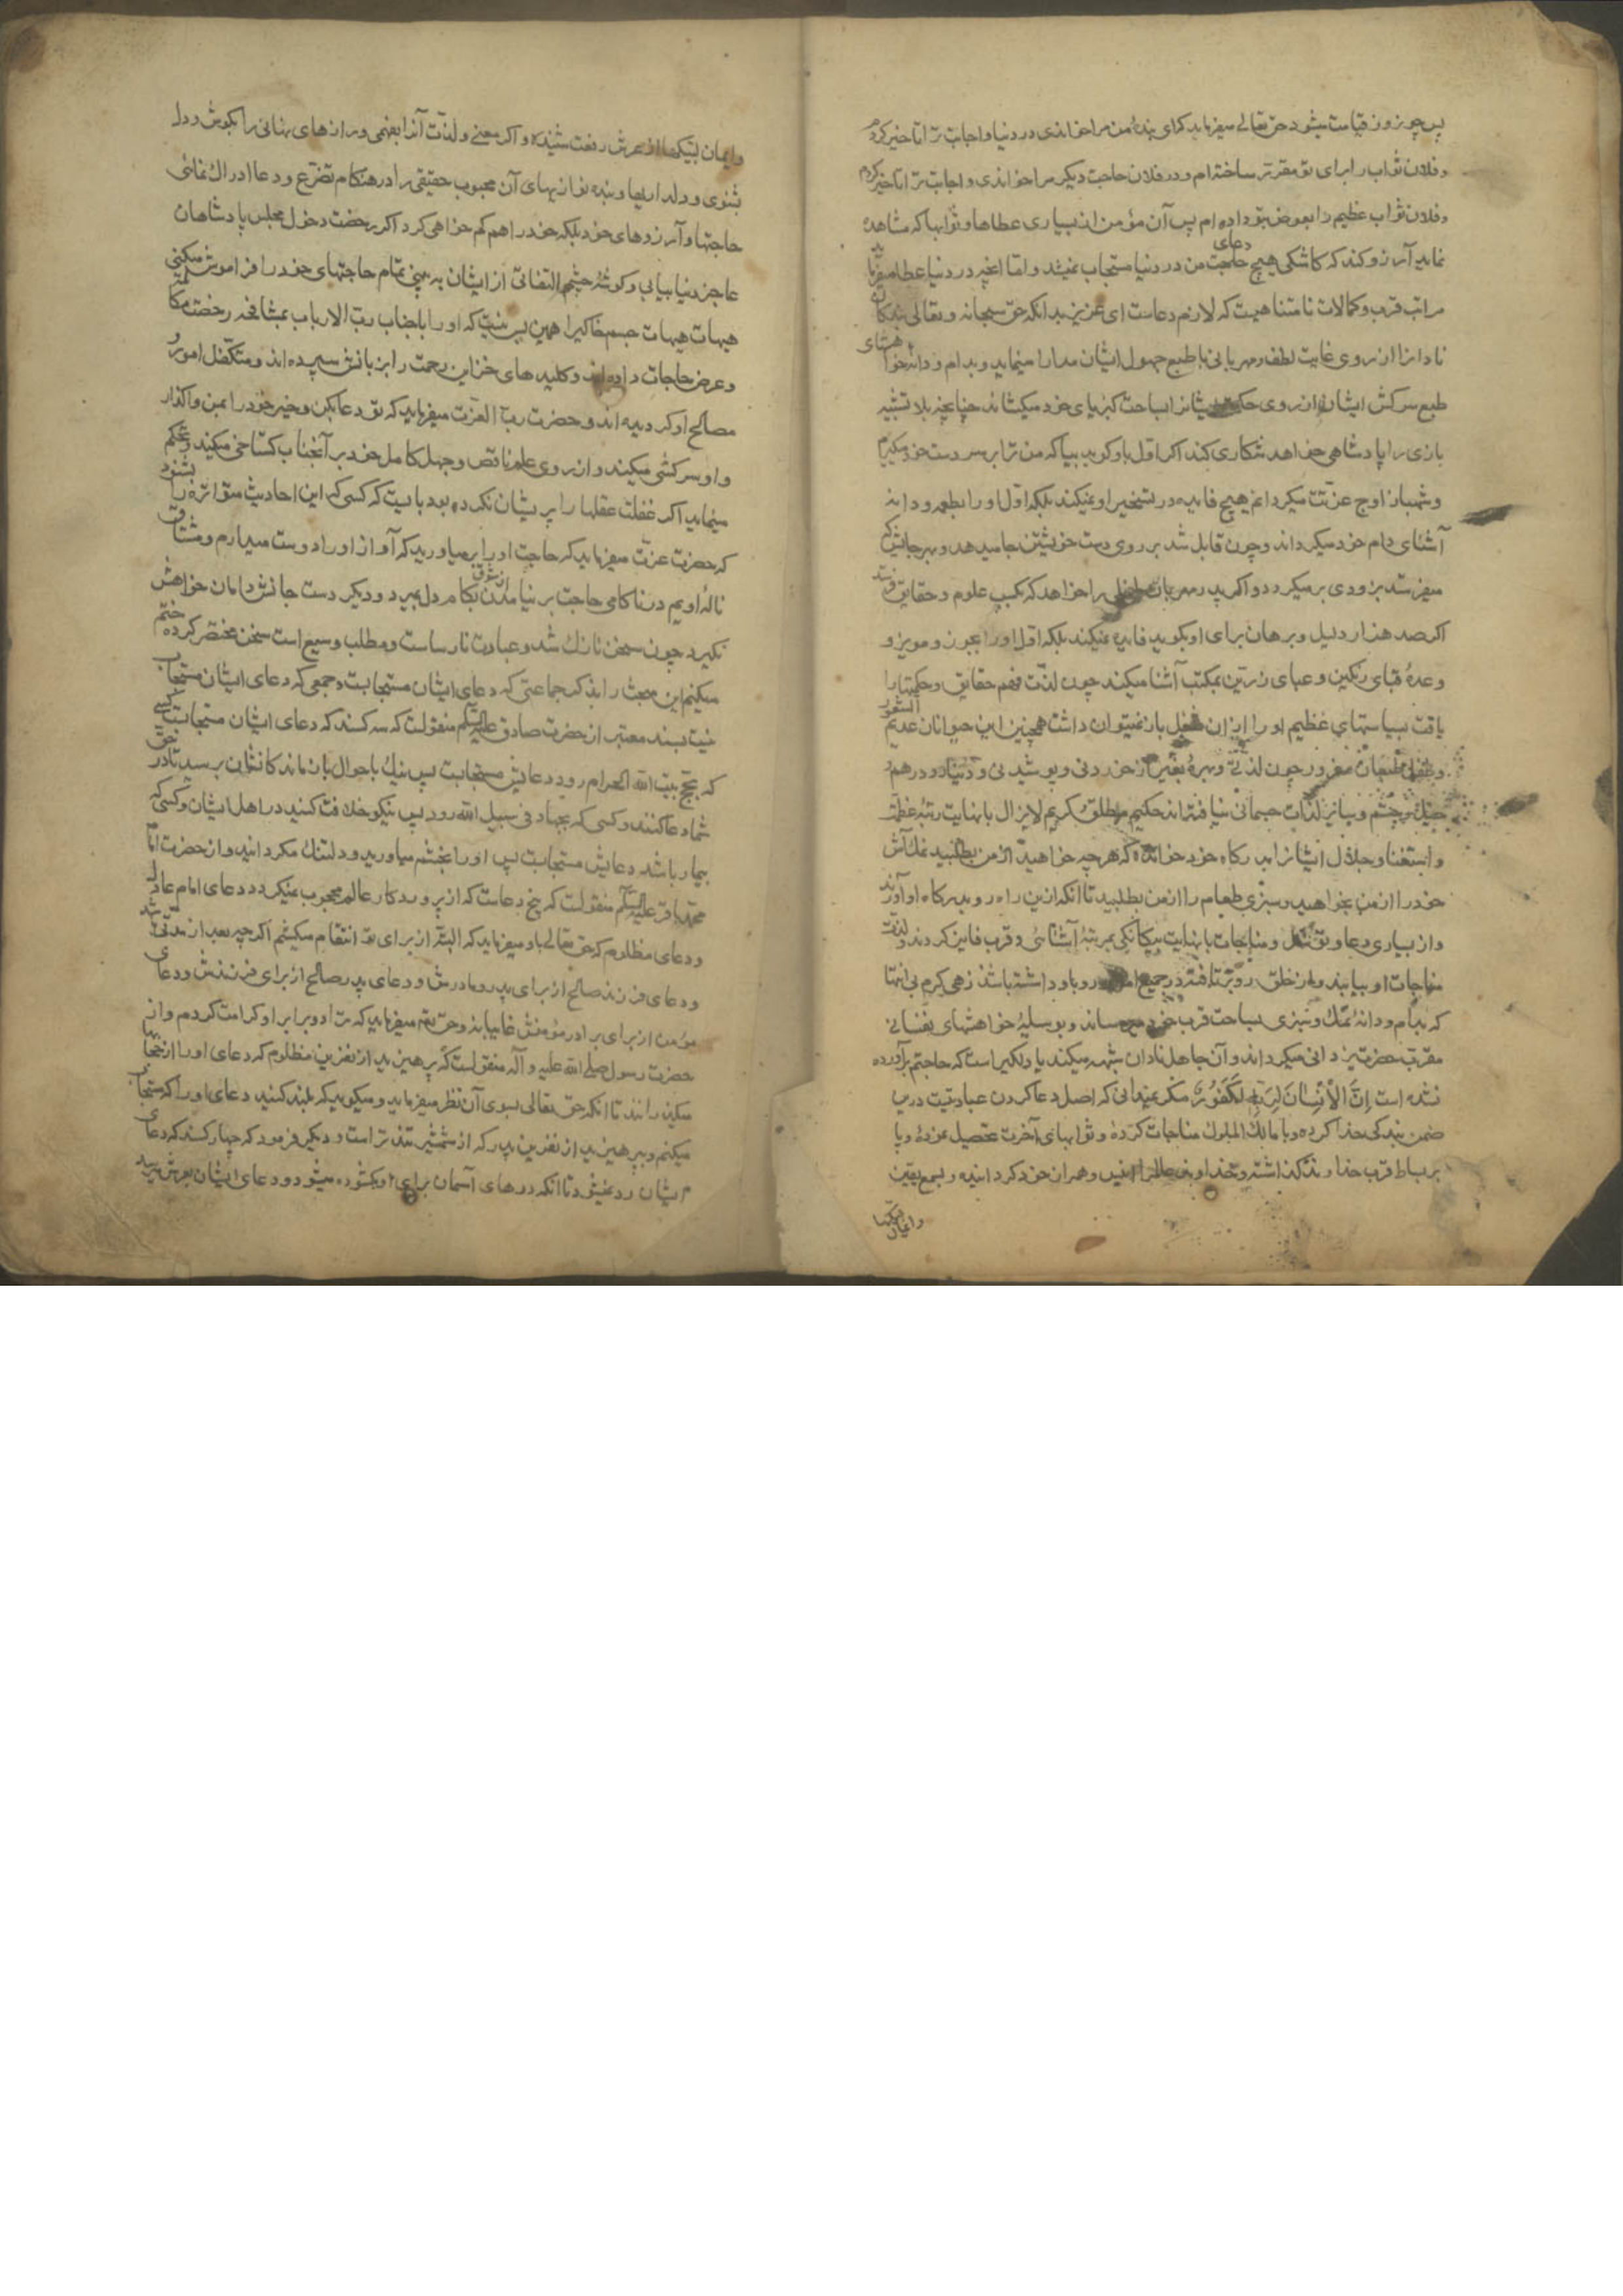 پس چون روز قیامت میشود حق تعالی میفرماید که ای بندهٔ من مرا خواندی در دنیا و اجابت ترا تاخیر کردم
و فلان ثواب را برای تو مقرر ساخته‌ام و در فلان حاجت دیگر مرا خواندی و اجابت ترا تاخیر کردم
و فلان ثواب عظیم را بعوض بتو داده‌ام پس آن مؤمن از بسیاری عطاها و ثوابها که مشاهده
نماید آرزو کند که کاشکی هیچ دعای حاجت من در دنیا مستجاب نمیشد و اما آنچه در دنیا عطا میفرماید
مراتب قرب و کمالات نامتناهیست که لازم دعاست ای عزیز بدانکه حق سبحانه و تعالی بندگان
نادانرا از روی غایت لطف و مهربانی با طبع جهول ایشان مدارا مینماید و بدام و دانه خواهشهای
طبع سرکش ایشان از روی حکمت ایشانرا بساحت کبریای خود میکشاند چنانچه بلاتشبیه
بازی را پادشاهی خواهد شکاری کند اگر اول باو گوید بیا که من ترا بر سر دست خود میگیرم
و شهباز اوج عزتت میگردانم هیچ فایده در تسخیر او نمیکند بلکه اول او را بطعمه و دانه
آشنای دام خود میگرداند و چون قابل شد بر روی دست خویشتن جا میدهد و بهر جانبش که
میفرستد بزودی برمیگردد و اگر پدر مهربان طفلی را خواهد که بکسب علوم و حقایق فرستد
اگر صد هزار دلیل و برهان برای او بگوید فایده نمیکند بلکه اول او را بجوز و مویز و
وعدهٔ قبای رنگین و عبای زرین بمکتب آشنا میکند چون لذت فهم حقایق و حکمتها را
یافت بسیاستهای عظیم او را از آن شغل باز نمیتوان داشت همچنین این حیوانان عدیم الشعور
و طفل طبعان مغرور چون لذتی و بهرهٔ بغیر از خوردنی و پوشیدنی و دینار و درهم
و سایر لذات جسمانی نیافته‌اند حکیم مطلق و کریم لایزال با نهایت رتبهٔ عظمت
و استغنا و جلال ایشانرا بدرگاه خود خوانده که هر چه خواهید از من بطلبید نمک آش
خود را از من بخواهید و سبزی طعام را از من بطلبید تا آنکه ازین راه رو بدرگاه او آورند
و از بسیاری دعا و توسل و مناجات با نهایت بیگانگی بمرتبهٔ آشنائی و قرب فایز گردند و لذت
مناجات او بیابند و از خلق رو برتافته در جمیع امور رو باو داشته باشند زهی کرم بی‌انتها
که بدام و دانهٔ نمک و سبزی بساحت قرب خود میرساند و بوسیلهٔ خواهشهای نفسانی
مقرب حضرت یزدانی میگرداند و آن جاهل نادان شبهه میکند یا دلگیر است که حاجتم برآورده
نشده است إِنَّ الْإِنْسَانَ لِرَبِّهِ لَكَفُورٌ مگر نمیدانی که اصل دعا کردن عبادتیست در این
ضمن بندگی خدا کرده و با مالک الملوک مناجات کرده و ثوابهای آخرت تحصیل نموده و پا
بر بساط قرب خداوند گذاشته و خداوند عالم را انیس و همراز خود گردانیده و بسمع یقین
و ایمان لبیکها
و ایمان لبیکها از عرش رفعت شنیده و اگر معنی و لذت آنرا بفهمی و رازهای نهانی را بگوش دل
بشنوی و دلداریها و بنده نوازیهای آن محبوب حقیقی را در هنگام تضرع و دعا ادراک نمائی
حاجتها و آرزوهای خود بلکه خود را هم گم خواهی کرد اگر رخصت دخول مجلس پادشاهان
عاجز دنیا بیابی و گوشهٔ چشم التفاتی از ایشان به بینی تمام حاجتهای خود را فراموش میکنی
هیهات هیهات جسم خاکیرا همین بس نیست که او را با جناب رب الارباب بمشافهه رخصت مکالمه
و عرض حاجات داده‌اند و کلیدهای خزاین رحمت را بزبانش سپرده‌اند و متکفل امور و
مصالح او گردیده‌اند و حضرت رب العزت میفرماید که تو دعا بکن و خیر خود را بمن واگذار
و او سرکشی میکند و از روی علم ناقص و جهل کامل خود بر آنجناب گستاخی میکند و تحکم
مینماید اگر غفلت عقلها را پریشان نکرده بود بایست که کسی که این احادیث متواتره را بشنود
که حضرت عزت میفرماید که حاجت او را برمیاورید که آواز او را دوست میدارم و مشتاق
نالهٔ اویم در ناکامی حاجت بر نیامدن از شوق بکام دل بمیرد و دیگر دست جانش دامان خواهش
نگیرد چون سخن نازک شد و عبارت نارساست و مطلب وسیع است سخن مختصر کرده ختم
میکنم این مبحث را بذکر جماعتی که دعای ایشان مستجابست و جمعی که دعای ایشان مستجاب
نیست بسند معتبر از حضرت صادق علیه السلام منقولست که سه کسند که دعای ایشان مستجابست کسی
که بحج بیت الله الحرام رود دعایش مستجابست پس نیک باحوال بازماندگانشان برسید تا در حق
شما دعا کنند و کسی که بجهاد فی سبیل الله رود پس نیکو خلافت کنید در اهل ایشان و کسی که
بیمار باشد دعایش مستجابست پس او را بخشم میاورید و دلتنگ مگردانید و از حضرت امام
محمد باقر علیه السلام منقولست که پنج دعاست که از پروردگار عالم محجوب نمیگردد دعای امام عادل
و دعای مظلوم که حق تعالی باو میفرماید که البته از برای تو انتقام میکشم اگر چه بعد از مدتی باشد
و دعای فرزند صالح از برای پدر و مادرش و دعای پدر صالح از برای فرزندش و دعای
مؤمن از برای برادر مؤمنش غایبانه و حق تعالی میفرماید که ترا دو برابر او کرامت کردم و از
حضرت رسول صلی الله علیه و آله منقولست که بپرهیزید از نفرین مظلوم که دعای او را از حجابها
میگذرانند تا آنکه حق تعالی بسوی آن نظر میفرماید و میگوید که بلند کنید دعای او را که مستجاب
میکنم و بپرهیزید از نفرین پدر که از شمشیر تندتر است و دیگر فرمود که چهار کسند که دعای
ایشان رد نمیشود تا آنکه درهای آسمان برای او گشوده میشود و دعای ایشان بعرش میرسد